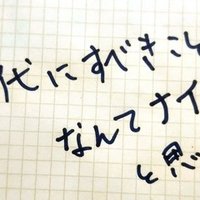 代にすべきこ
なんてナイ
と思